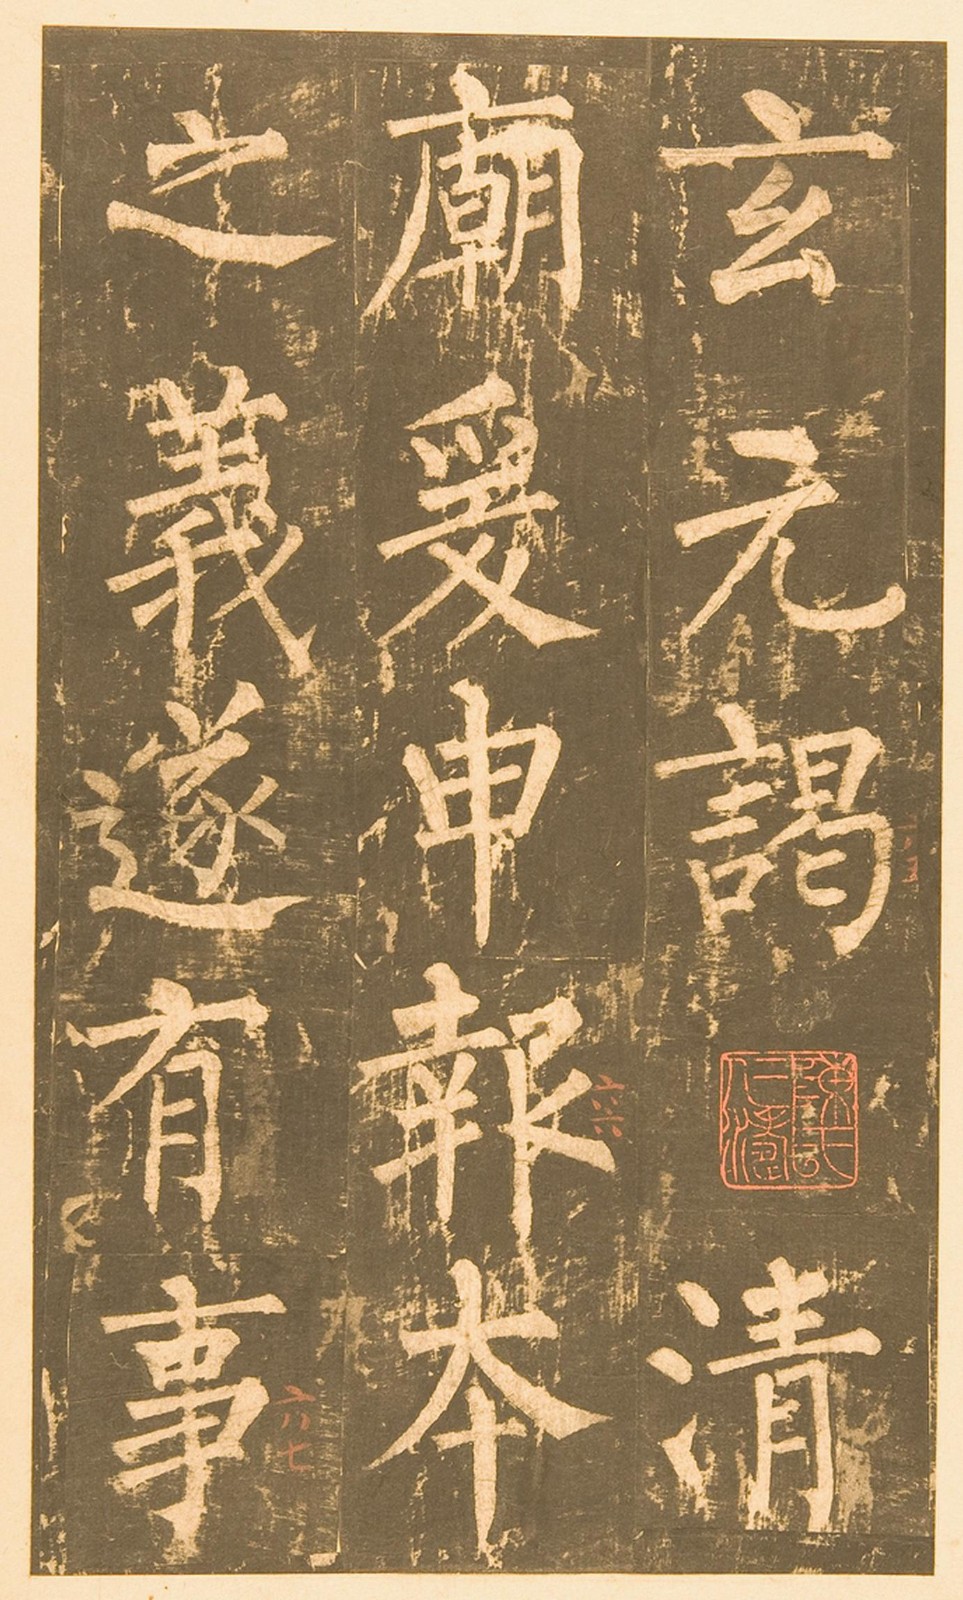 玄元謁清
廟爰申報本
之義遂有事
六六
六八七